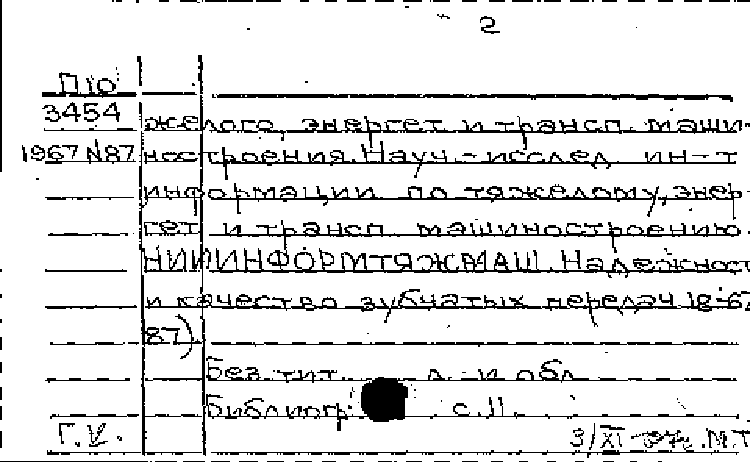 2
П10
3454 желого, энергет и трансп. маши-
1967 N87 ностроения. Науч.-исслед. ин-т
информации по тяжелому, энер-
гет и трансп. машиностроению.
НИИИНФОРМТЯЖМАШ. Надежност
и качество зубчатых передач 18-67
87)
без тит. л. и обл
библиогр: с. 11.
Г.У. 3/XI М.Т